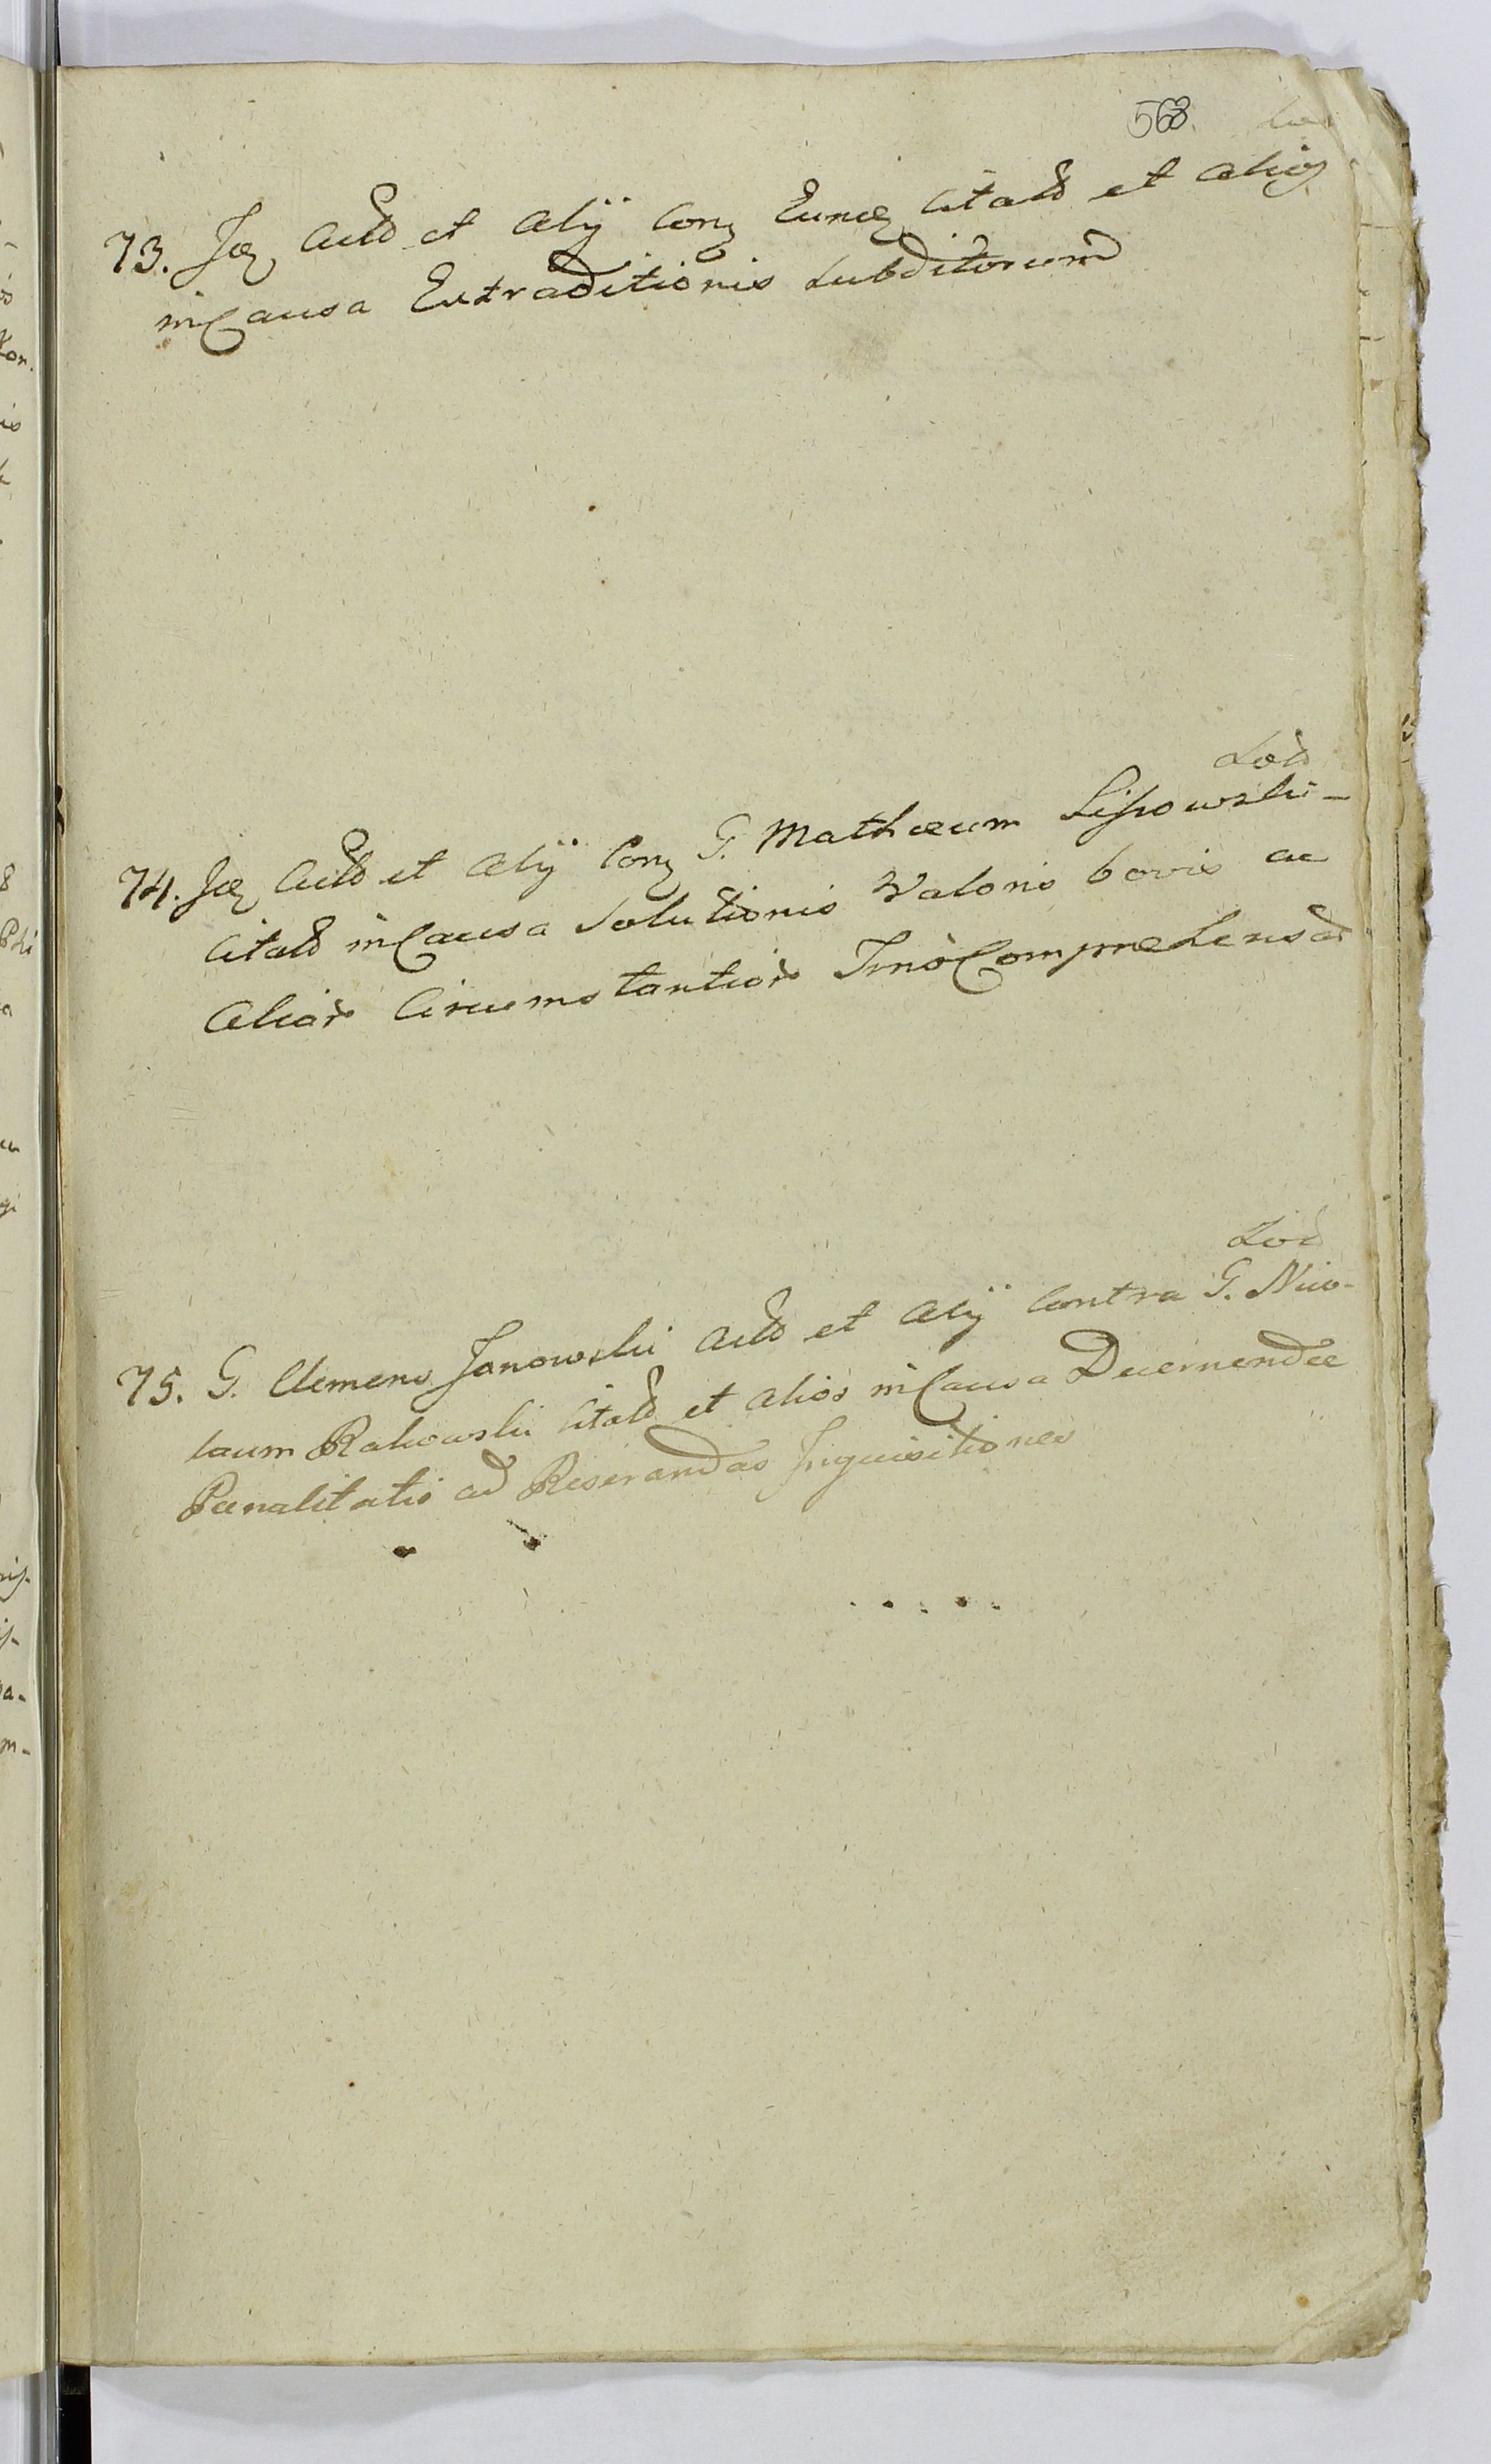 568.
73. Jdẽ Actõ et Alij Conȝ Eundẽ Citatõ et Alios
in Causa Extraditionis Subditorum
Lod
74. Jdẽ Actõ et Alij Conȝ G. Mathæum Lipowski -
Citatõ in Causa Solutionis Valoris bovis ac
Aliar Circumstantiar Imò Comprehensar
Lod
75. G. Clemens Janowski Actõ et Alij Contra G. Nico-
laum Rakowski Citatõ et Alios in Causa Decernendæ
Pœnalitatis ad Reserandas Inquisitiones